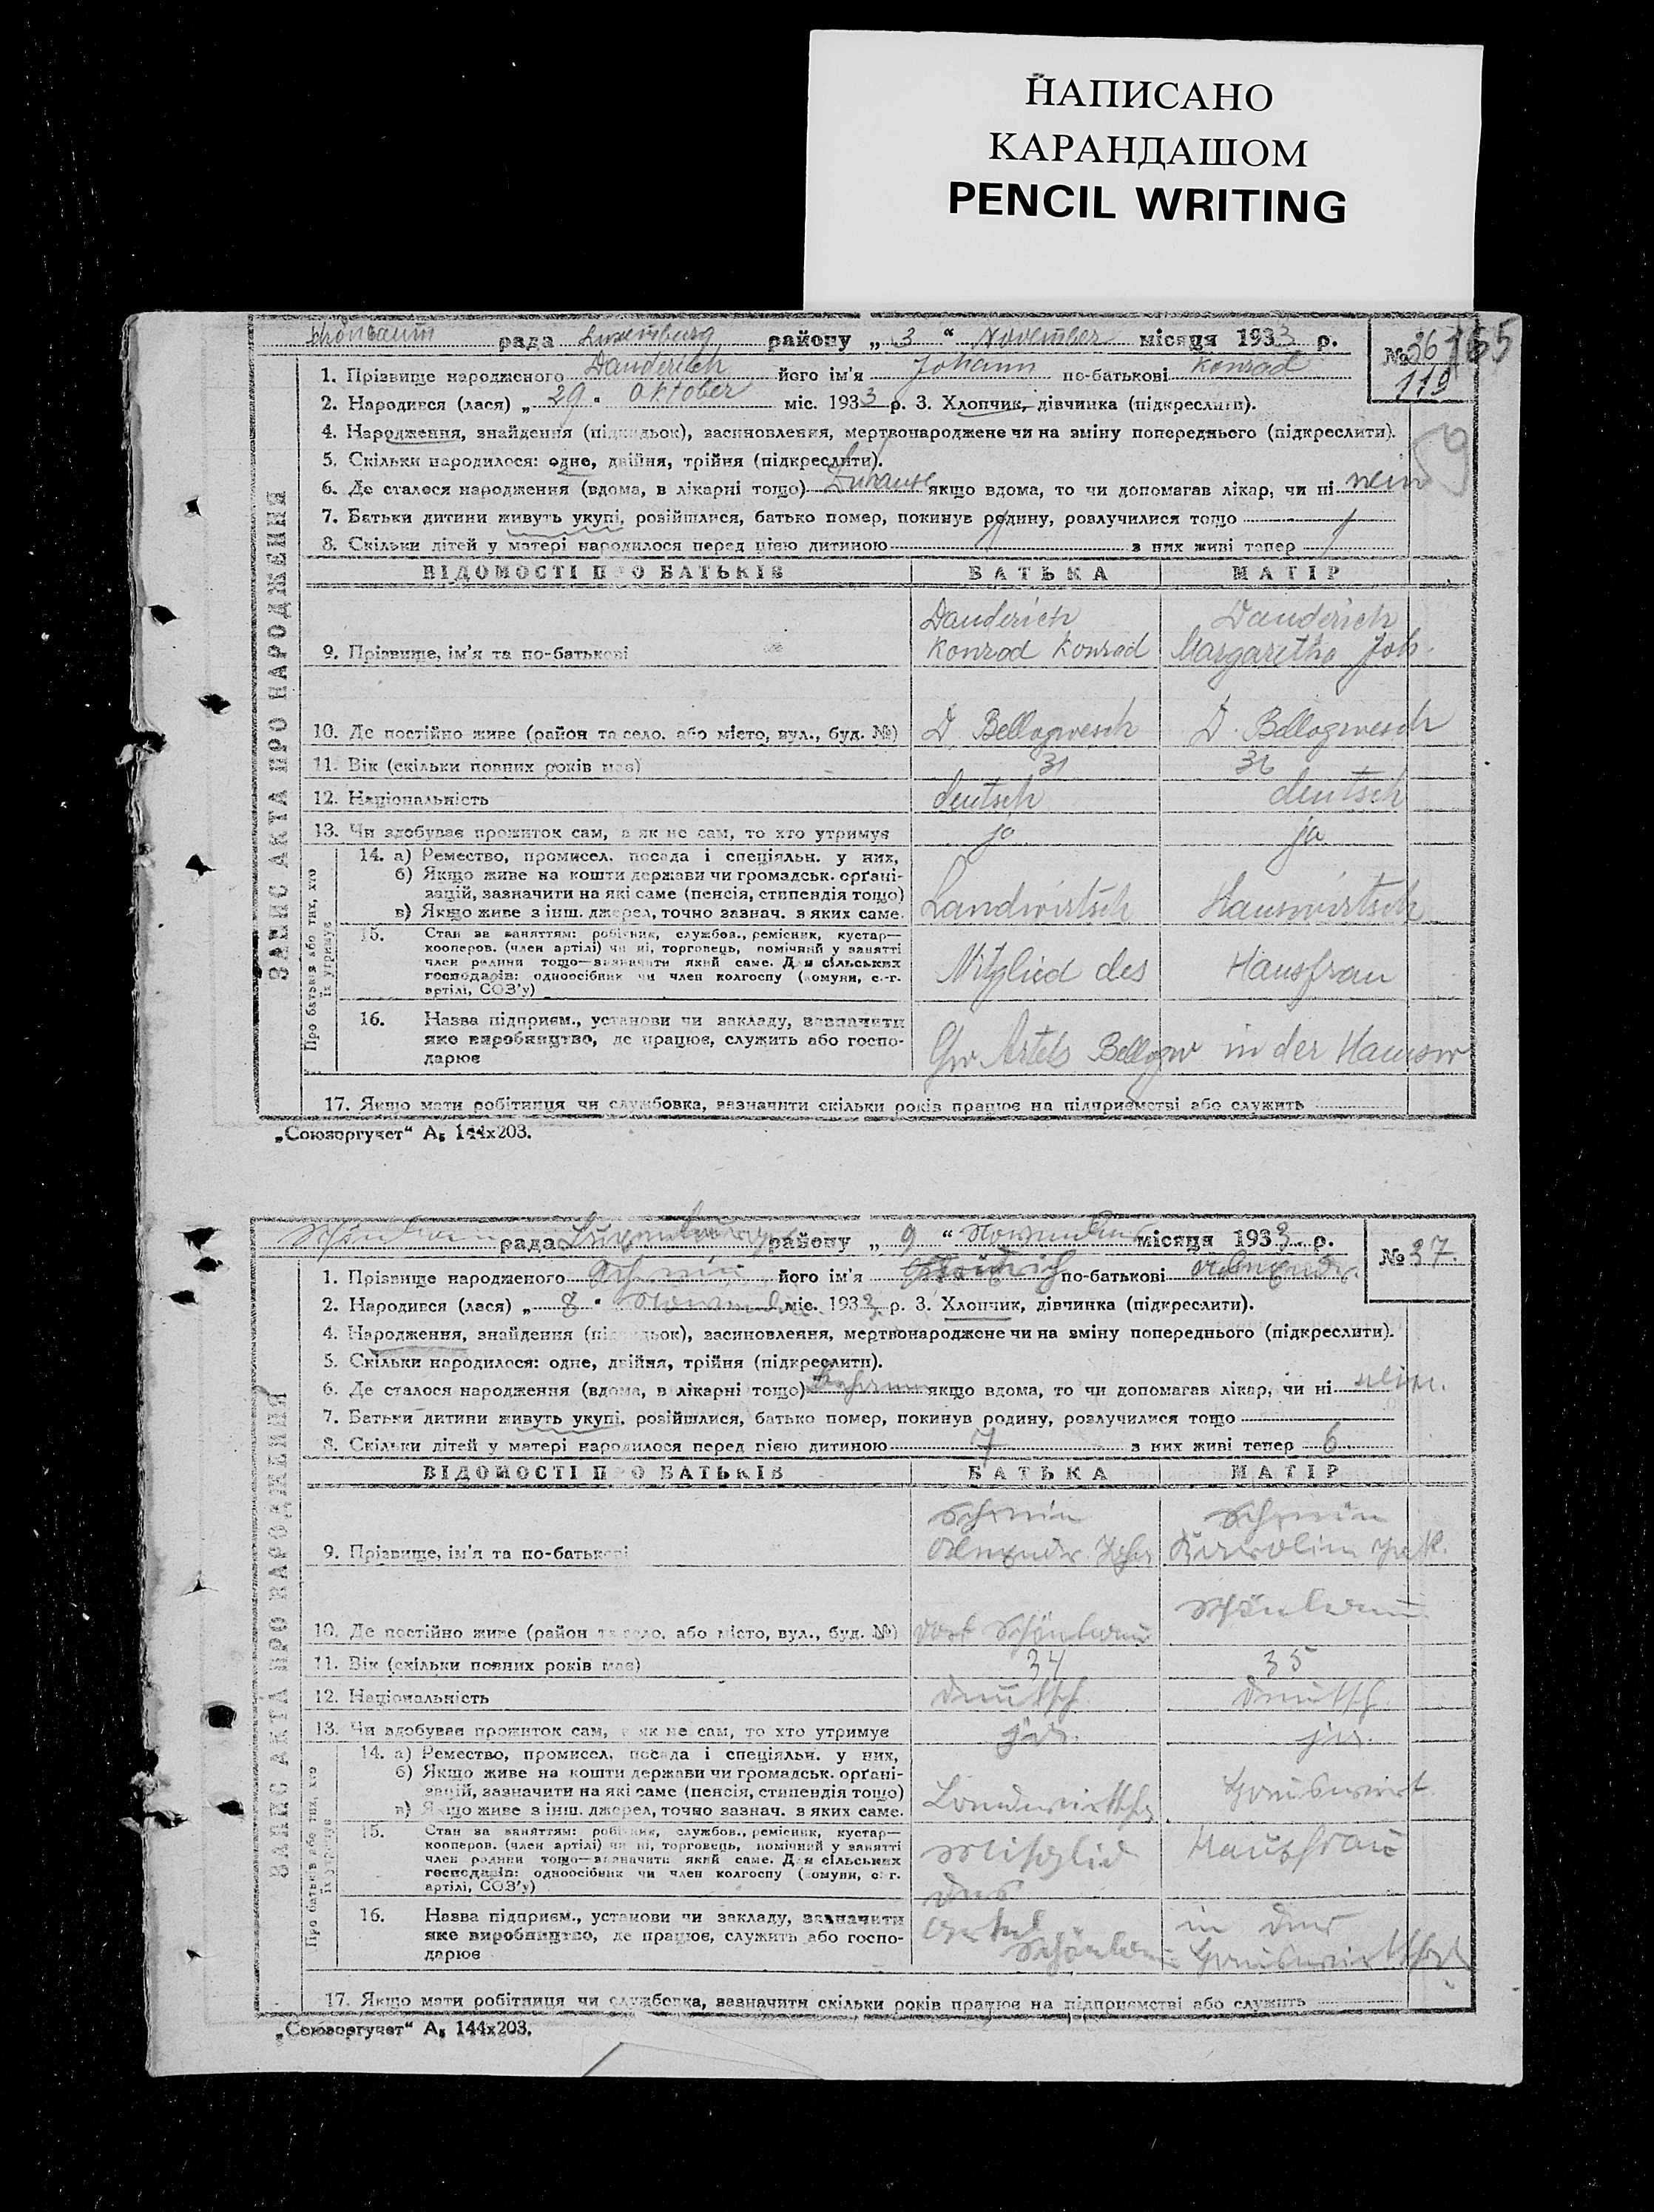 НАПИСАНО
КАРАНДАШОМ
PENCIL WRITING
Schönbaum рада Luxemburg району „ 3 “ November місяця 1933 р. № 36 165
119
59
ЗАПИС АКТА ПРО НАРОДЖЕННЯ
1. Прізвище народженого Dauderich його ім'я Johann по-батькові Konrad
2. Народився (лася) „ 29 “ Oktober міс. 1933 р. 3. Хлопчик, дівчинка (підкреслити).
4. Народження, знайдення (підкидьок), засиновлення, мертвонароджене чи на зміну попереднього (підкреслити).
5. Скільки народилося: одне, двійня, трійня (підкреслити).
6. Де сталося народження (вдома, в лікарні тощо) Zuhause якщо вдома, то чи допомагав лікар, чи ні nein
7. Батьки дитини живуть укупі, розійшлися, батько помер, покинув родину, розлучилися тощо
8. Скільки дітей у матері народилося перед цією дитиною 1 з них живі тепер 1
ВІДОМОСТІ ПРО БАТЬКІВ БАТЬКА МАТІР
Dauderich Dauderich
9. Прізвище, ім'я та по-батькові Konrad Konrad Margaretha Joh.
10. Де постійно живе (район та село. або місто, вул., буд. №) D. Bellogwesch D. Bellogwesch
11. Вік (скільки повних років має) 31
12. Національність deutsch deutsch
13. Чи здобуває прожиток сам, а як не сам, то хто утримує ja ja
Про батьків або тих, хто їх утримує
14. а) Ремество, промисел. посада і спеціяльн. у них,
б) Якщо живе на кошти держави чи громадськ. орґані-
зацій, зазначити на які саме (пенсія, стипендія тощо)
в) Якщо живе з інш. джерел, точно зазнач. з яких саме. Landwirtsch Hauswirtsch
15. Стан за заняттям: робітник, службов., ремісник, кустар—
кооперов. (член артілі) чи ні, торговець, помічний у занятті
член родини тощо—визначити який саме. Для сільських
господарів: одноосібник чи член колгоспу (комуни, с.-г.
артілі, СОЗ'у) Mitglied des Hausfrau
16. Назва підприєм., установи чи закладу, зазначити
яке виробництво, де працює, служить або госпо-
дарює Artels Bellogw in der Hausw
17. Якщо мати робітниця чи службовка, зазначити скільки років працює на підприємстві або служить
„Союзоргучет“ А₅ 144х203.
Schönbaum рада Luxemburg району „ 9 “ November місяця 1933 р. № 37.
ЗАПИС АКТА ПРО НАРОДЖЕННЯ
1. Прізвище народженого його ім'я Friedrich по-батькові Alexander
2. Народився (лася) „ 8 “ November міс. 1933 р. 3. Хлопчик, дівчинка (підкреслити).
4. Народження, знайдення (підкидьок), засиновлення, мертвонароджене чи на зміну попереднього (підкреслити).
5. Скільки народилося: одне, двійня, трійня (підкреслити).
6. Де сталося народження (вдома, в лікарні тощо) якщо вдома, то чи допомагав лікар, чи ні nein.
7. Батьки дитини живуть укупі, розійшлися, батько помер, покинув родину, розлучилися тощо
8. Скільки дітей у матері народилося перед цією дитиною 7 з них живі тепер 6
ВІДОМОСТІ ПРО БАТЬКІВ БАТЬКА МАТІР
9. Прізвище, ім'я та по-батькові Alexander
Schönbaum
10. Де постійно живе (район та село. або місто, вул., буд. №) Schönbaum
11. Вік (скільки повних років має) 34 35
12. Національність deutsch deutsch
13. Чи здобуває прожиток сам, а як не сам, то хто утримує ja. ja.
Про батьків або тих, хто їх утримує
14. а) Ремество, промисел. посада і спеціяльн. у них,
б) Якщо живе на кошти держави чи громадськ. орґані-
зацій, зазначити на які саме (пенсія, стипендія тощо)
в) Якщо живе з інш. джерел, точно зазнач. з яких саме. Landwirtsch Hauswirt
15. Стан за заняттям: робітник, службов., ремісник, кустар—
кооперов. (член артілі) чи ні, торговець, помічний у занятті
член родини тощо—визначити який саме. Для сільських
господарів: одноосібник чи член колгоспу (комуни, с.-г.
артілі, СОЗ'у) Mitglied des Hausfrau
16. Назва підприєм., установи чи закладу, зазначити
яке виробництво, де працює, служить або госпо-
дарює Artel Schönbaum in der Hauswirtschaft
17. Якщо мати робітниця чи службовка, зазначити скільки років працює на підприємстві або служить
„Союзоргучет“ А₅ 144х203.